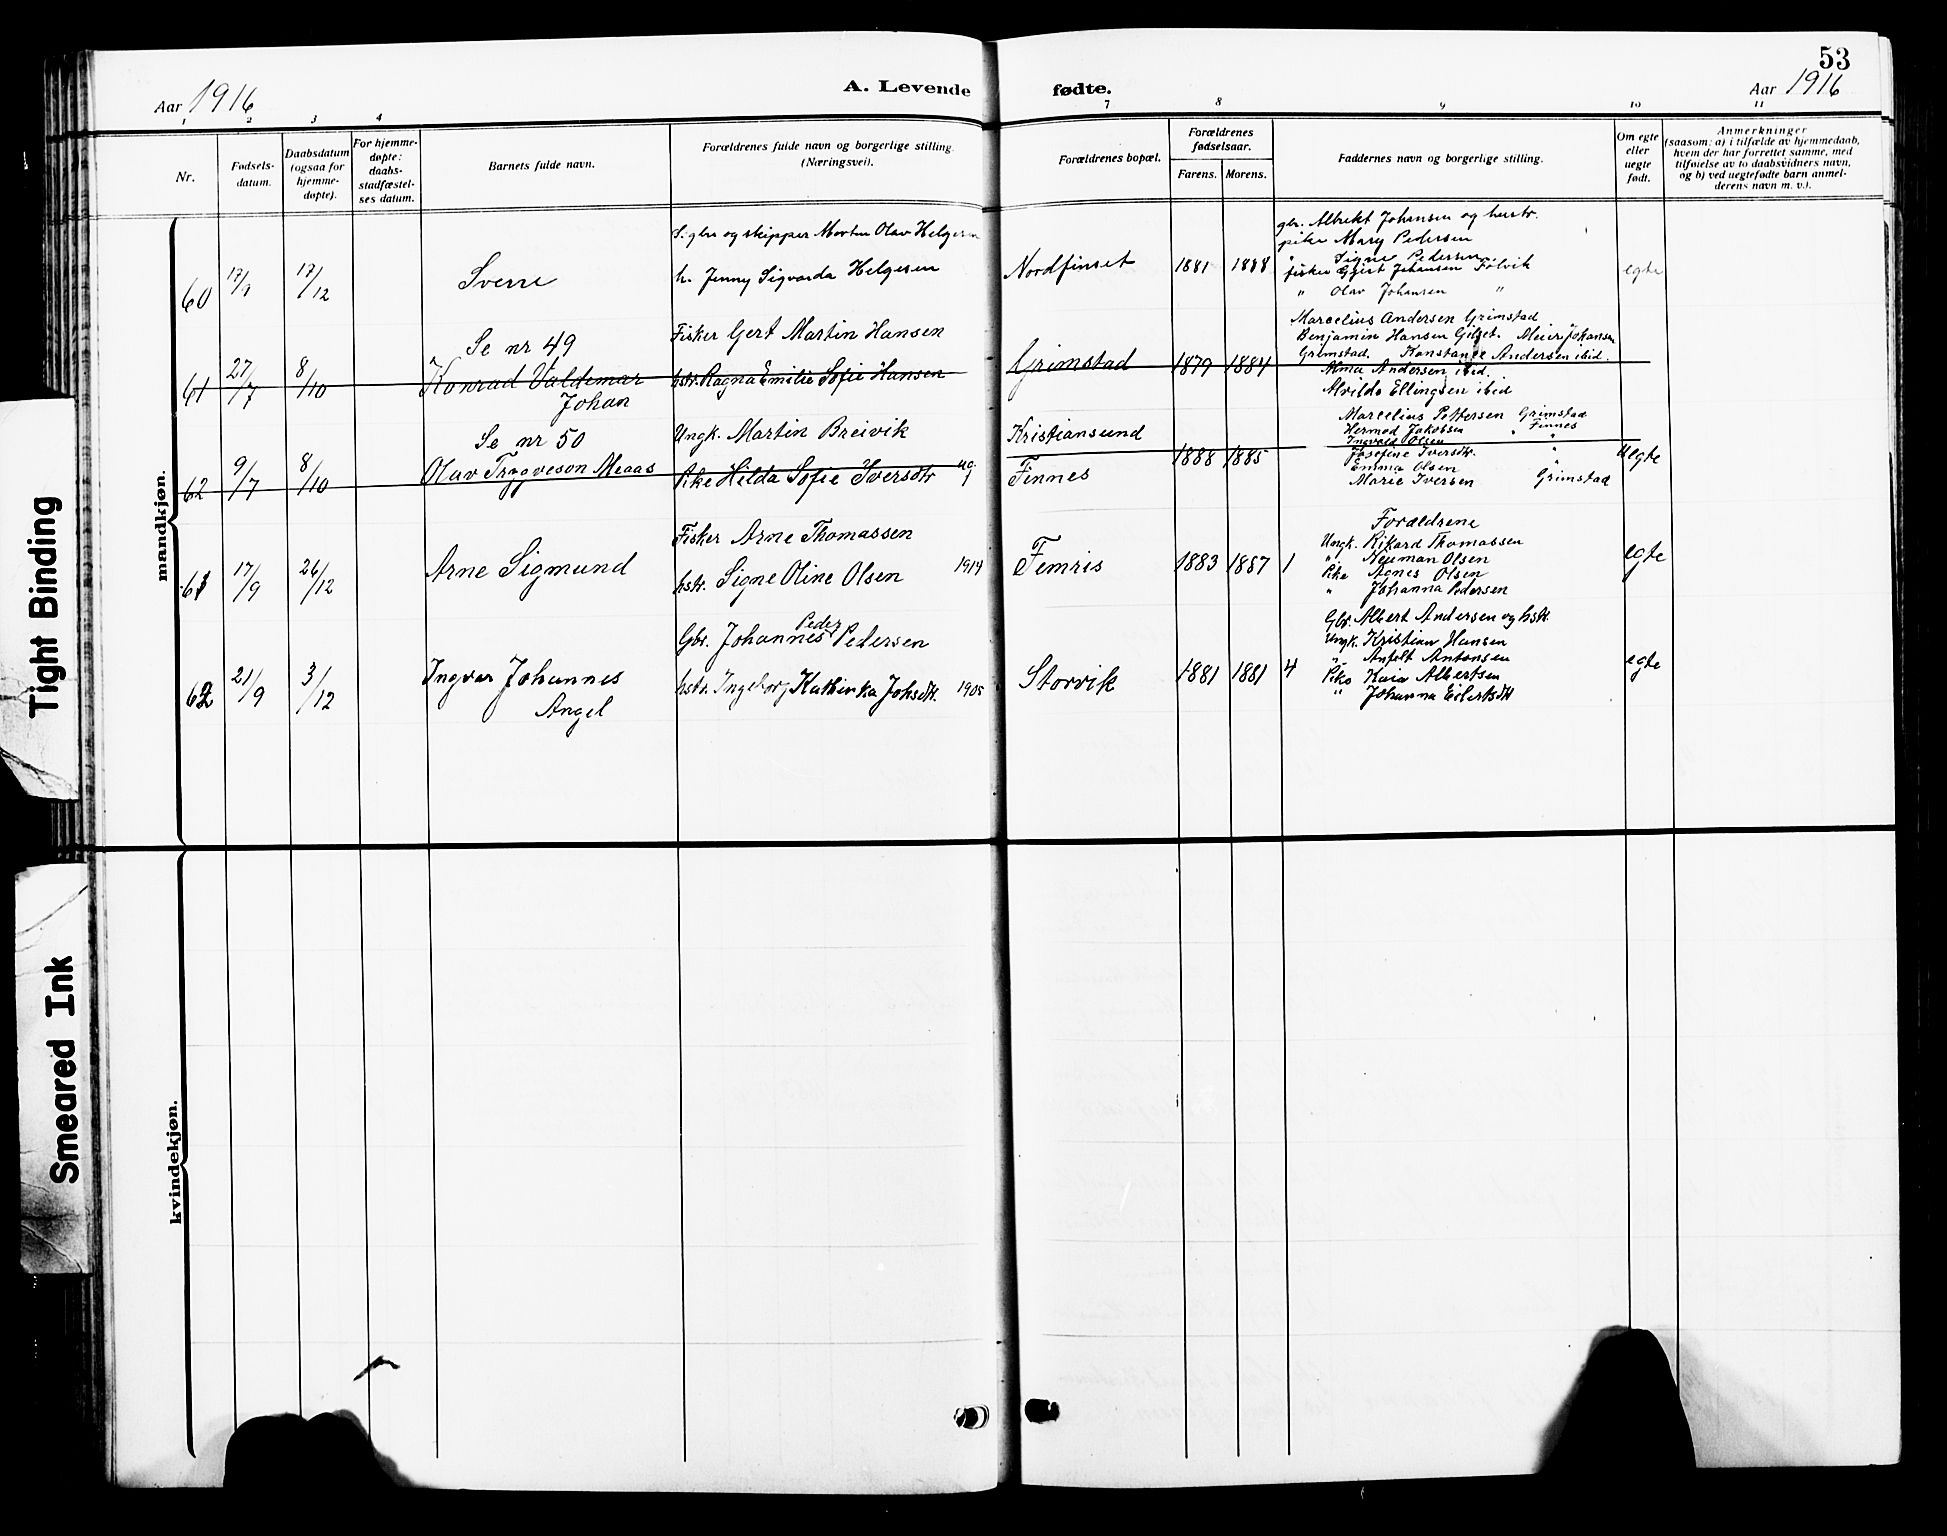 53
Aar 1916
A. Levende fødte.
Aar 1916
1 2 3 4 7 8 9 10 11
Nr.
Fødsels-
datum.
Daabsdatum
(ogsaa for
hjemme-
døpte).
For hjemme-
døpte:
daabs-
stadfæstel-
ses datum.
Barnets fulde navn.
Forældrenes fulde navn og borgerlige stilling.
(Næringsvei).
Forældrenes bopæl.
Forældrenes
fødselsaar.
Farens. Morens.
Faddernes navn og borgerlige stilling.
Om egte
eller
uegte
født.
Anmerkninger
(saasom: a) i tilfælde av hjemmedaab,
hvem der har forrettet samme, med
tilføielse av to daabsvidners navn,
og b) ved uegtefødte barn anmel-
derens navn m. v.).
mandkjøn.
60 17/9 17/12 Sverre
og skipper Morten Olav Helgesen
h. Jenny Sigvarda Helgesen
Nordfinset 1881 1888
gbr. Albrekt Johansen og hustr.
pike Mary Pedersen
" Signe Pedersen
fisker Johansen
" Olav Johansen "
egte
Se nr 49
61 27/7 8/10 Konrad Valdemar
Johan
Fisker Gert Martin Hansen
hstr. Ragna Emilie Sofie Hansen
Grimstad 1879 1884
Marcelius Andersen Grimstad
Benjamin Hansen Meier Johansen
Grimstad, Konstance Andersen ibid.
Alma Andersen ibid.
Alvilde Ellingsen ibid
Se nr 50
62 9/7 8/10 Olav Trygveson Meaas
Ungk. Martin Breivik
Pike Hilda Sofie Iversdtr ug
Kristiansund
Finnes 1888 1885
Marcelius Pettersen Grimstad
Hermod Jakobsen " Finnes
Ingvald Olsen "
Josefine Iversdtr. "
Emma Olsen "
Marie Iversen Grimstad
Uegte
61 17/9 26/12 Arne Sigmund
Fisker Arne Thomassen
hstr. Signe Oline Olsen 1914
Femris 1883 1887 1
Forældrene
Ungk. Rikard Thomassen
" Neuman Olsen
Pike Agnes Olsen
" Johanna Pedersen
egte
62 21/9 3/12 Ingvar Johannes
Angel
Gbr. Johannes Peder Pedersen
hstr. Ingeborg Kathinka Johsdtr. 1905
Storvik 1881 1881 4
Gbr. Albert Andersen og hstr.
Ungk. Kristian Hansen
" Antonsen
Pike Kaia Albertsen
" Johanna Eilertsdtr
egte
kvindekjøn.
Tight Binding
Smeared Ink